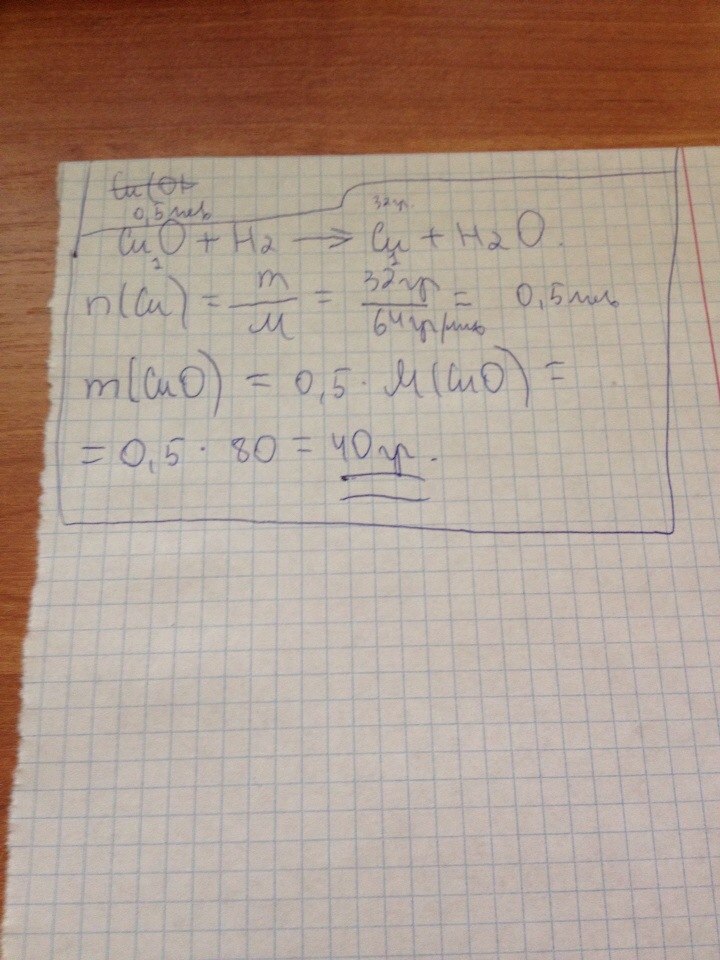 0,5 моль
32гр.
CuO + H2 → Cu + H2O.
1 1
n(Cu) = m/M = 32гр/64гр/моль = 0,5 моль
m(CuO) = 0,5 · M(CuO) =
= 0,5 · 80 = 40 гр.